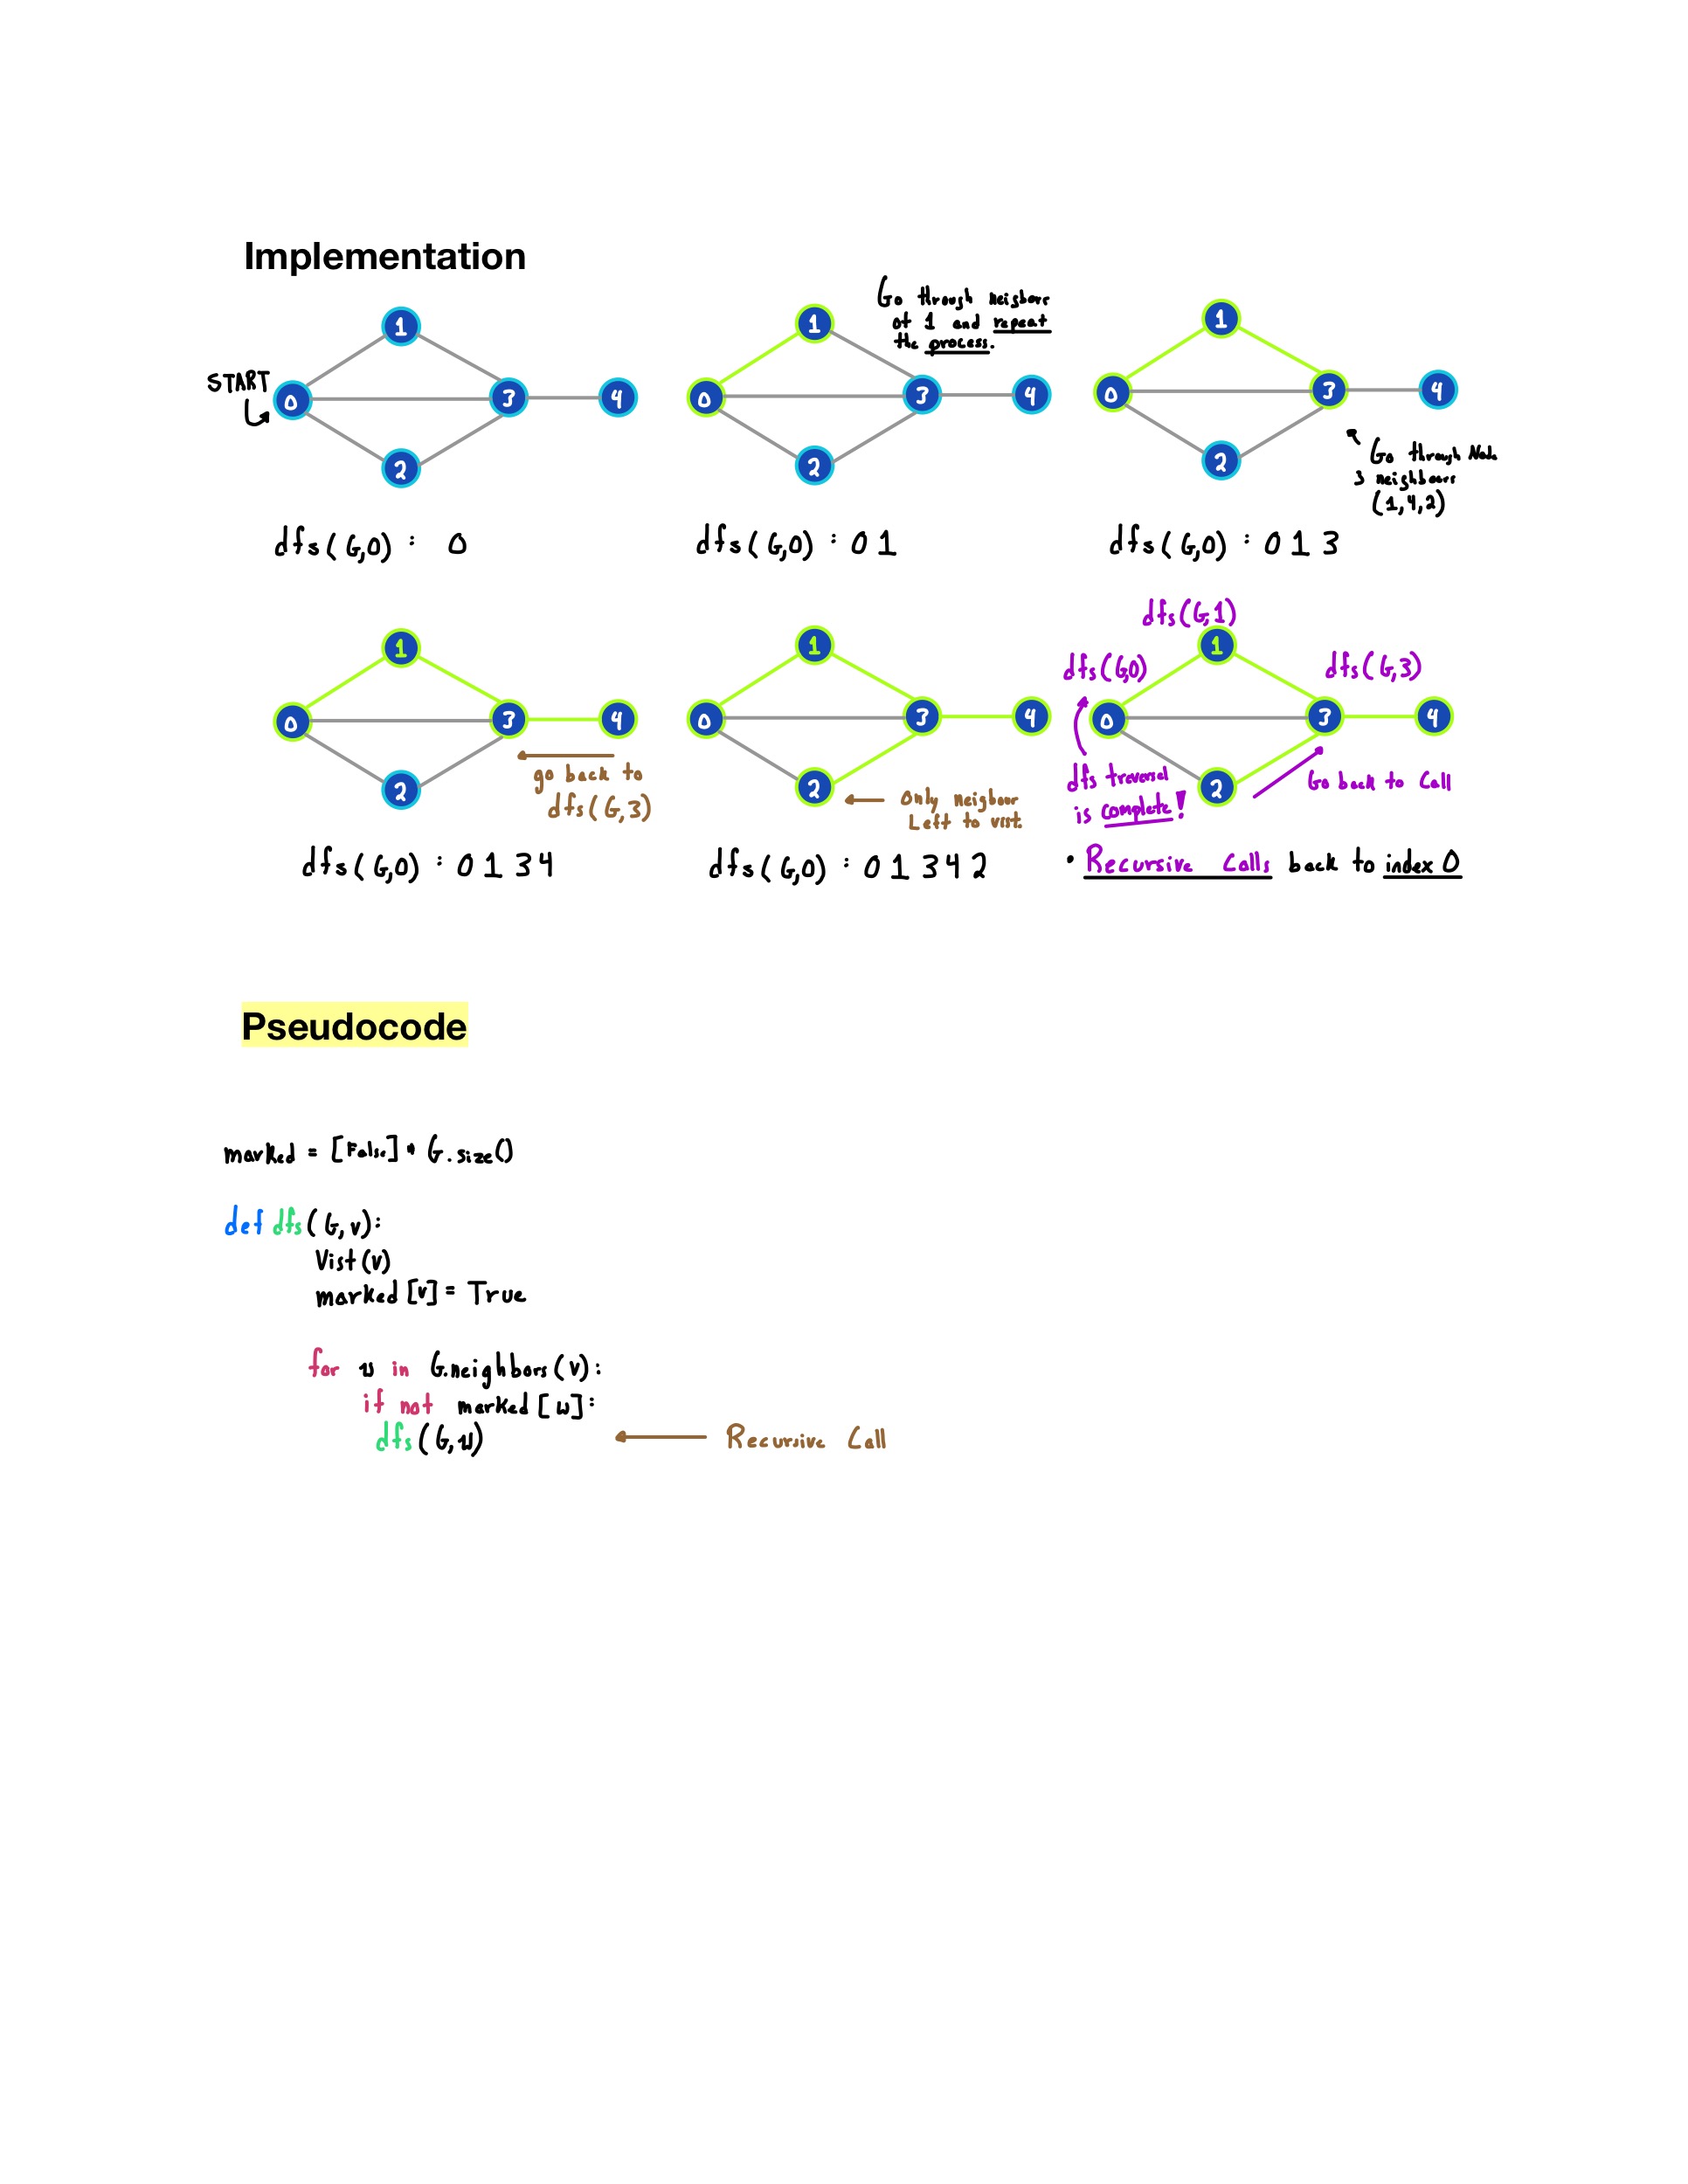 Implementation
START
0
1
2
3
4
dfs(G,0) : 0
Go through neigbors
of 1 and repeat
the process.
0
1
2
3
4
dfs(G,0) : 0 1
0
1
2
3
4
Go through Node
3 neighbours
(1,4,2)
dfs(G,0) : 0 1 3
0
1
2
3
4
go back to
dfs(G,3)
dfs(G,0) : 0 1 3 4
0
1
2
3
4
Only neigbour
Left to vist.
dfs(G,0) : 0 1 3 4 2
dfs(G,1)
dfs(G,0)
dfs(G,3)
0
1
2
3
4
dfs traversal
is complete!
Go back to Call
• Recursive Calls back to index 0
Pseudocode
marked = [False] * G.size()
def dfs(G,v):
Vist(v)
marked[v] = True
for w in G.neighbors(v):
if not marked[w]:
dfs(G,w)
Recursive Call